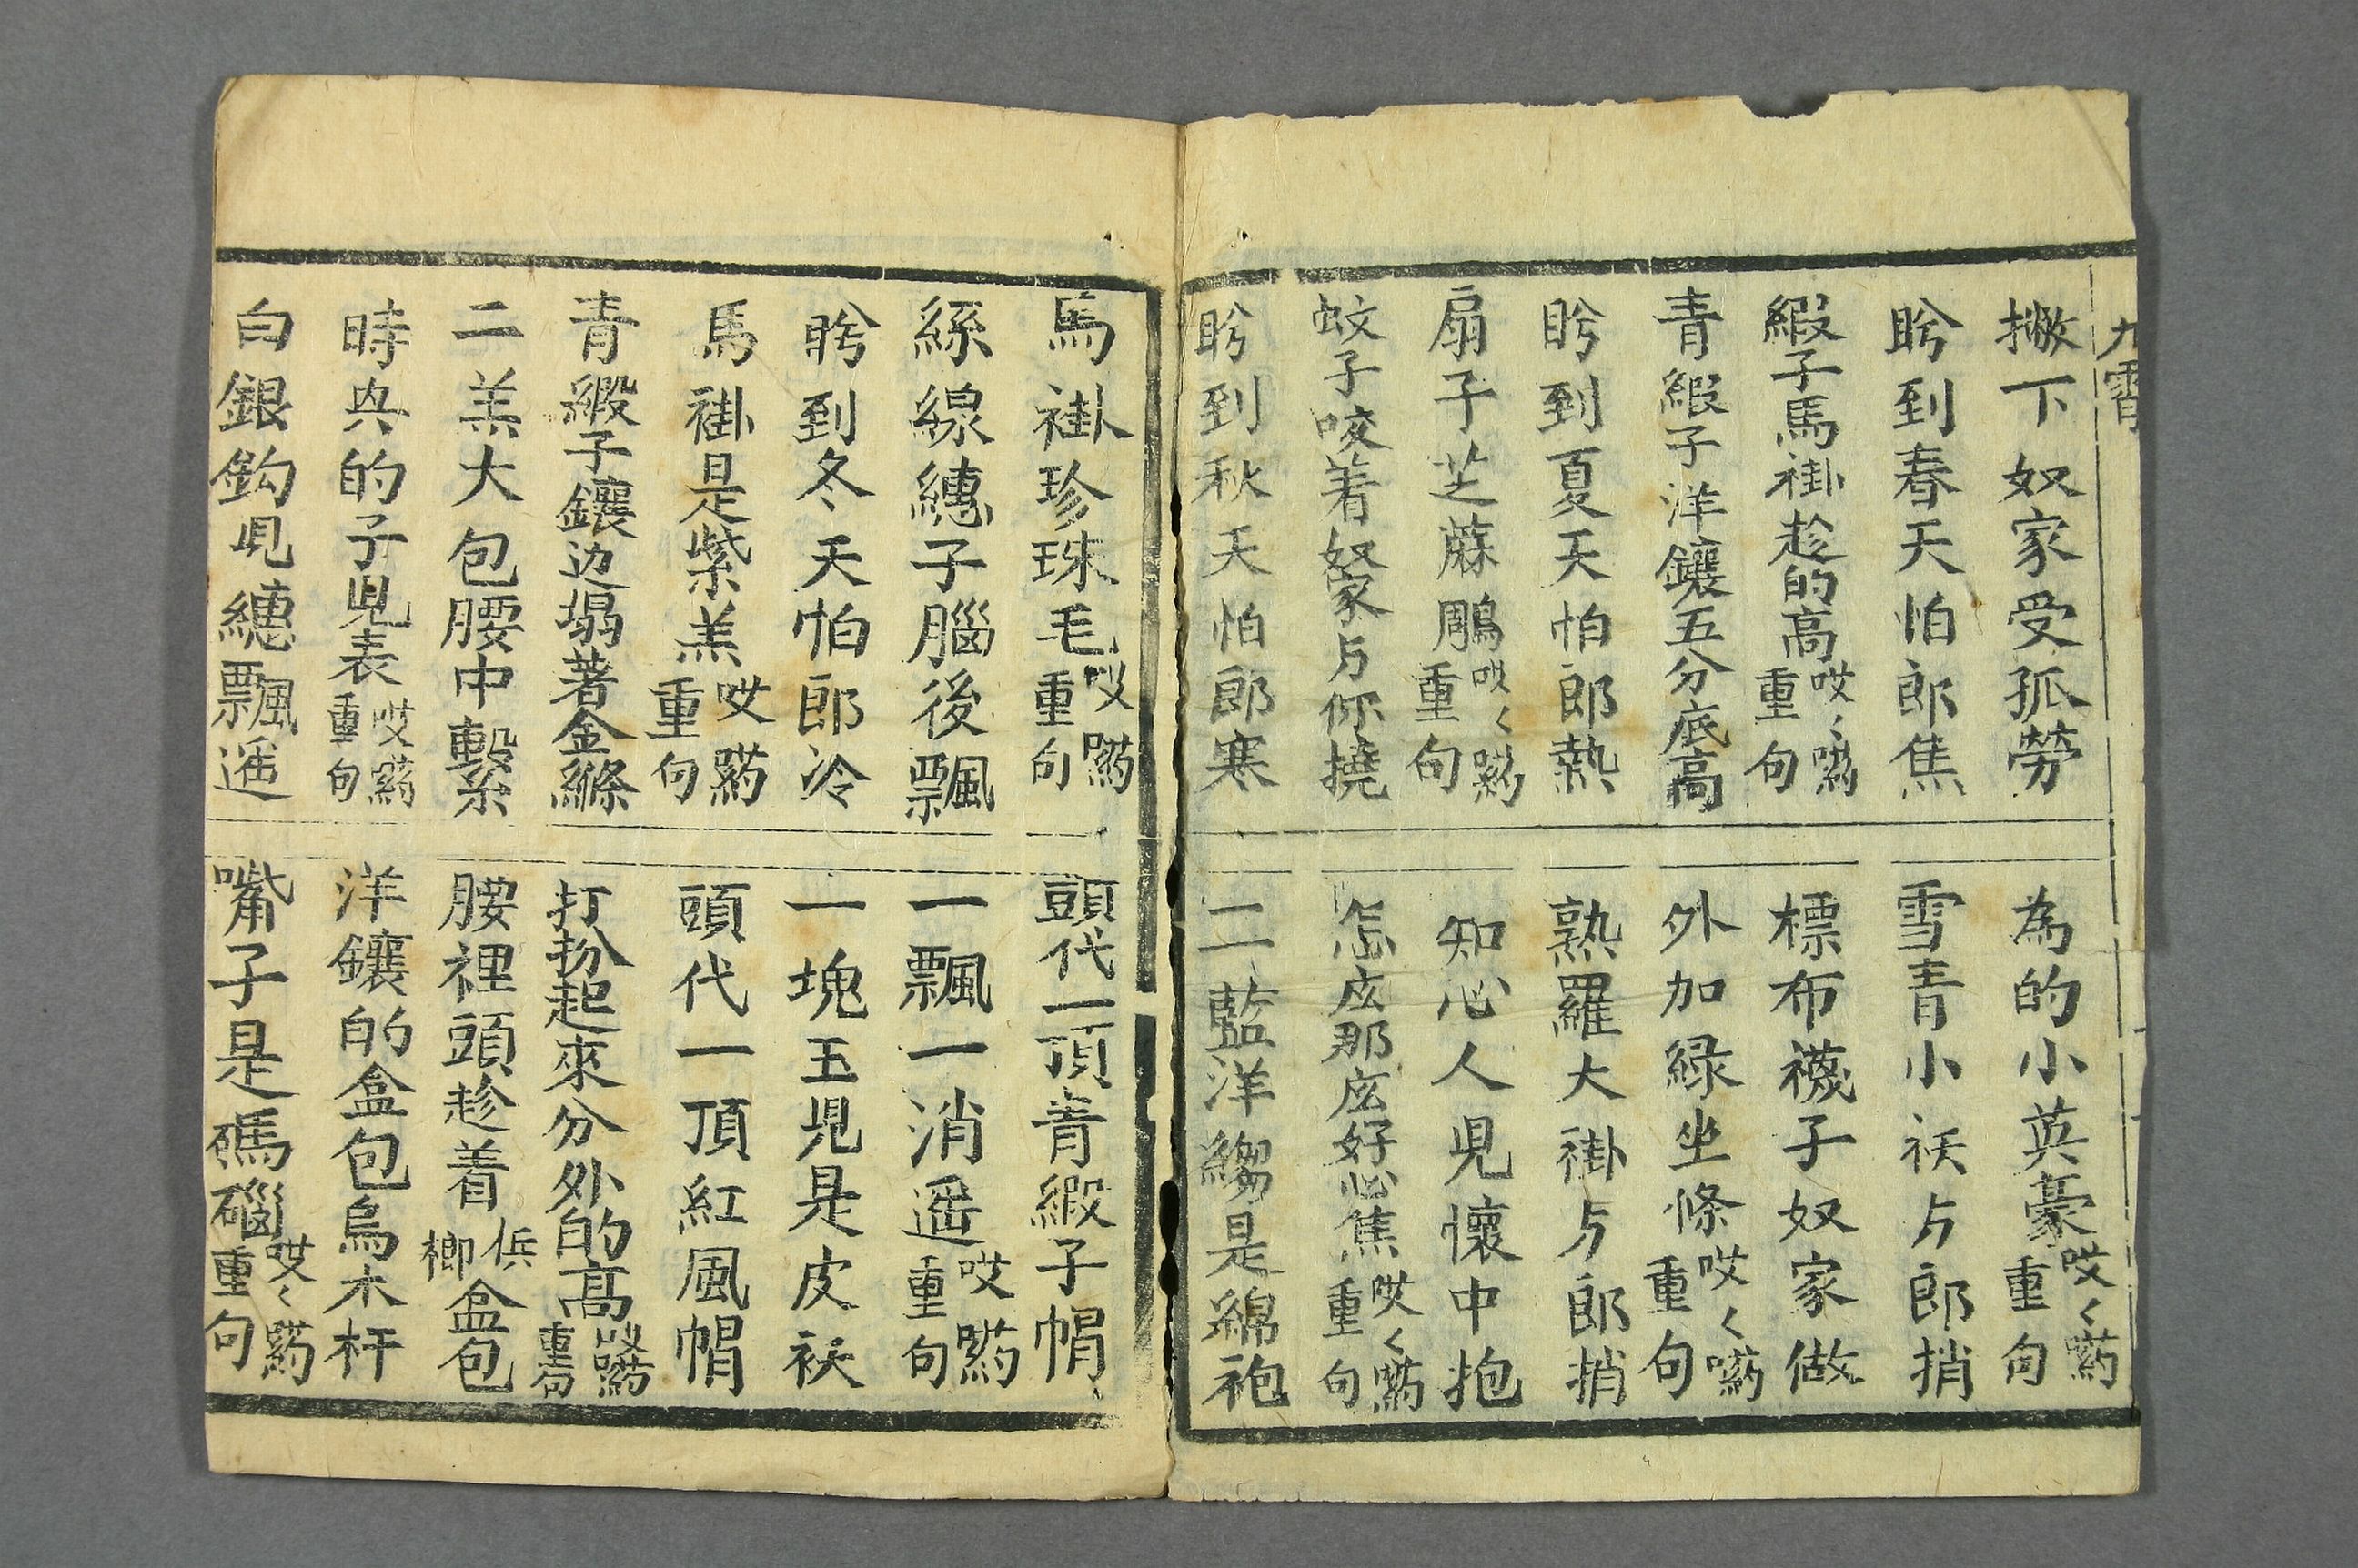 九霄
撇下奴家受孤勞
為的小英豪哎々喲重句
盻到春天怕郎焦
雪青小袄与郎捎
緞子馬褂趁的高哎々喲重句
標布襪子奴家做
青緞子洋鑲五分底高
外加緑坐條哎々喲重句
盻到夏天怕郎熱
熟羅大褂与郎捎
扇子芝蔴鵰哎々喲重句
知心人兒懷中抱
蚊子咬着奴家与你撓
怎庅那庅好心焦哎々喲重句
盻到秋天怕郎寒
二藍洋縐是綿袍
馬褂珍珠毛哎喲重句
頭代一頂青緞子帽
絲線繐子腦後飄
一飄一消遥哎喲重句
盻到冬天怕郎冷
一塊玉兒是皮袄
馬褂是紫羔哎喲重句
頭代一頂紅風帽
青緞子鑲边塌著金縧
打扮起來分外的高哎喲重句
二羔大包腰中繫
腰裡頭趁着梹榔盒包
時興的子兒表哎喲重句
洋鑲的盒包烏木杆
白銀鈎兒繐飄遥
嘴子是碼碯哎々喲重句